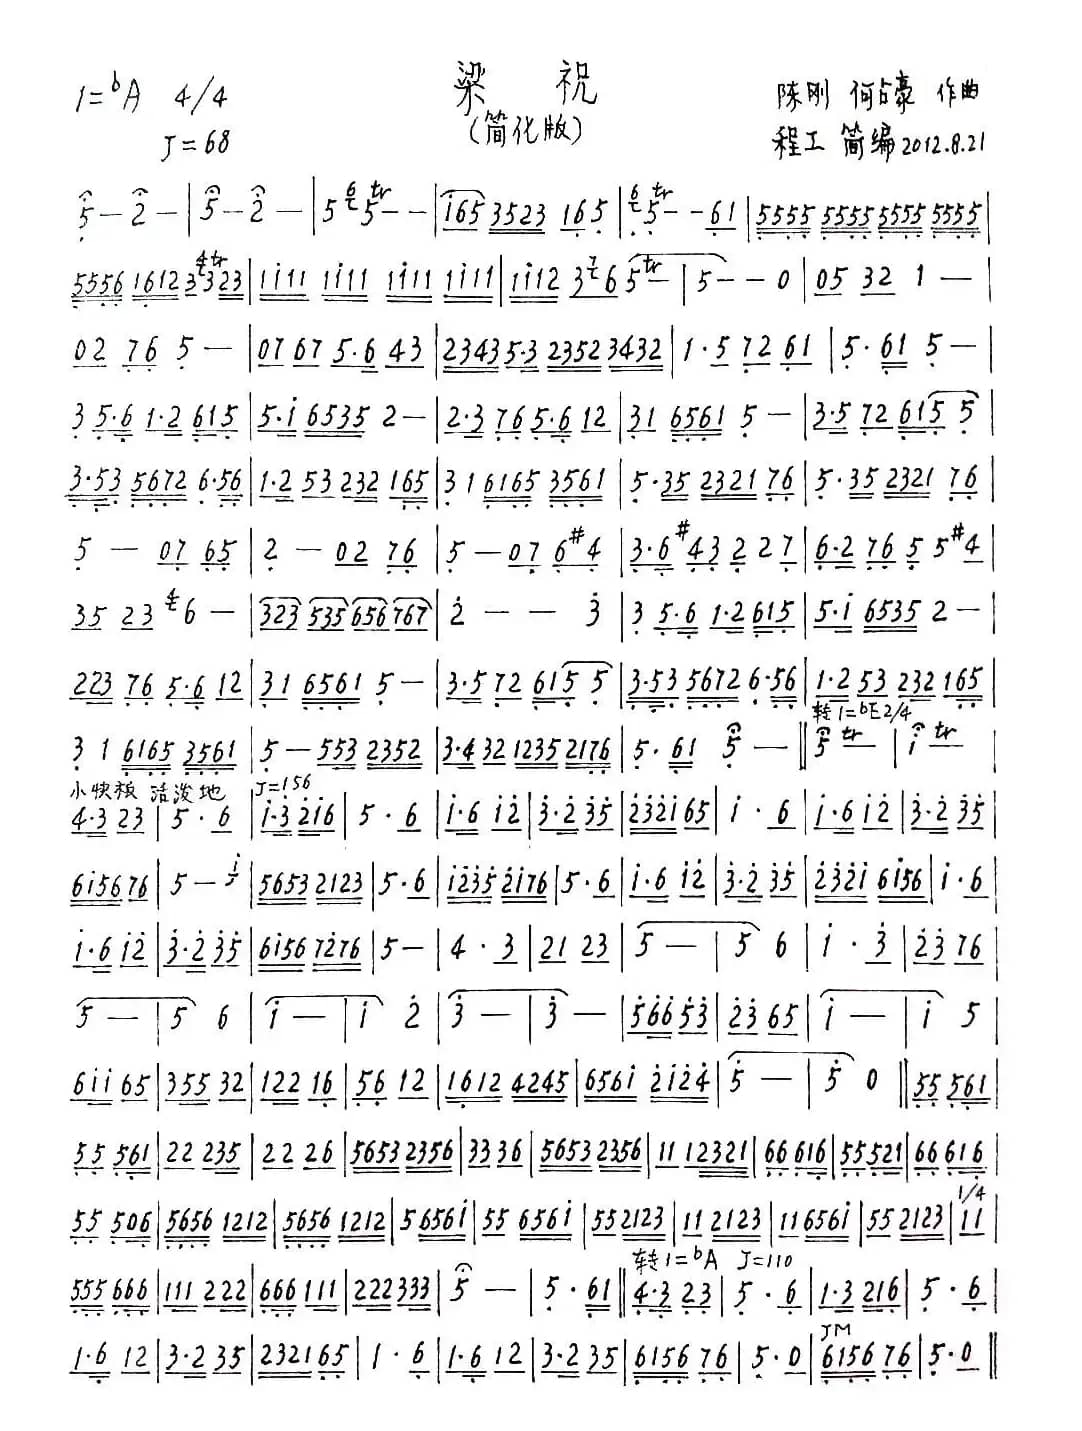 梁 祝
1=ᵇA 4/4 陈刚 何占豪 作曲
(简化版)
J=68 程工 简编 2012.8.21
5 — 2 — | 5 — 2 — | 5 6 5 tr — — | i65 3523 165 | 6 5 tr — — 61 | 5555 5555 5555 5555 |
5556 1612 3 4 tr 323 | 1i11 1i11 1i11 1i11 | 1i12 3 7 6 5 tr — | 5 — — 0 | 05 32 1 — |
02 76 5 — | 07 67 5·6 43 | 2343 5·3 2352 3432 | 1·5 72 61 | 5·61 5 — |
3 5·6 1·2 615 | 5·i 6535 2 — | 2·3 76 5·6 12 | 31 6561 5 — | 3·5 72 615 5 |
3·53 5672 6·56 | 1·2 53 232 165 | 3 1 6165 3561 | 5·35 2321 76 | 5·35 2321 76 |
5 — 07 65 | 2 — 02 76 | 5 — 07 6#4 | 3·6 #43 2 2 7 | 6·2 76 5 5#4 |
35 23 4 6 — | 323 535 656 767 | 2 — — 3 | 3 5·6 1·2 615 | 5·i 6535 2 — |
223 76 5·6 12 | 31 6561 5 — | 3·5 72 615 5 | 3·53 5672 6·56 | 1·2 53 232 165 |
转1=ᵇE 2/4
3 1 6165 3561 | 5 — 553 2352 | 3·4 32 1235 2176 | 5·61 5 — ‖ 5 tr — | i tr — |
小快板 活泼地 J=156
4·3 23 | 5·6 | i·3 2i6 | 5·6 | i·6 i2 | 3·2 35 | 232i 65 | i·6 | i·6 i2 | 3·2 35 |
6i56 76 | 5 — i | 5653 2123 | 5·6 | i235 2i76 | 5·6 | i·6 i2 | 3·2 35 | 232i 6i56 | i·6 |
i·6 i2 | 3·2 35 | 6i56 7276 | 5 — | 4·3 | 21 23 | 5 — | 5 6 | i·3 | 23 76 |
5 — | 5 6 | i — | i 2 | 3 — | 3 — | 566 53 | 23 65 | i — | i 5 |
6ii 65 | 355 32 | 122 16 | 56 12 | 1612 4245 | 656i 2i24 | 5 — | 5 0 ‖ 55 561 |
55 561 | 22 235 | 22 26 | 5653 2356 | 33 36 | 5653 2356 | 11 12321 | 66 616 | 55 521 | 66 616 |
1/4
55 506 | 5656 1212 | 5656 1212 | 5 656i | 55 656i | 55 2123 | 11 2123 | 11 656i | 55 2123 | 11 |
转1=ᵇA J=110
555 666 | 111 222 | 666 111 | 222 333 | 5 — | 5·61 ‖ 4·3 23 | 5·6 | 1·3 216 | 5·6 |
JM
1·6 12 | 3·2 35 | 2321 65 | 1·6 | 1·6 12 | 3·2 35 | 6156 76 | 5·0 | 6156 76 | 5·0 ‖